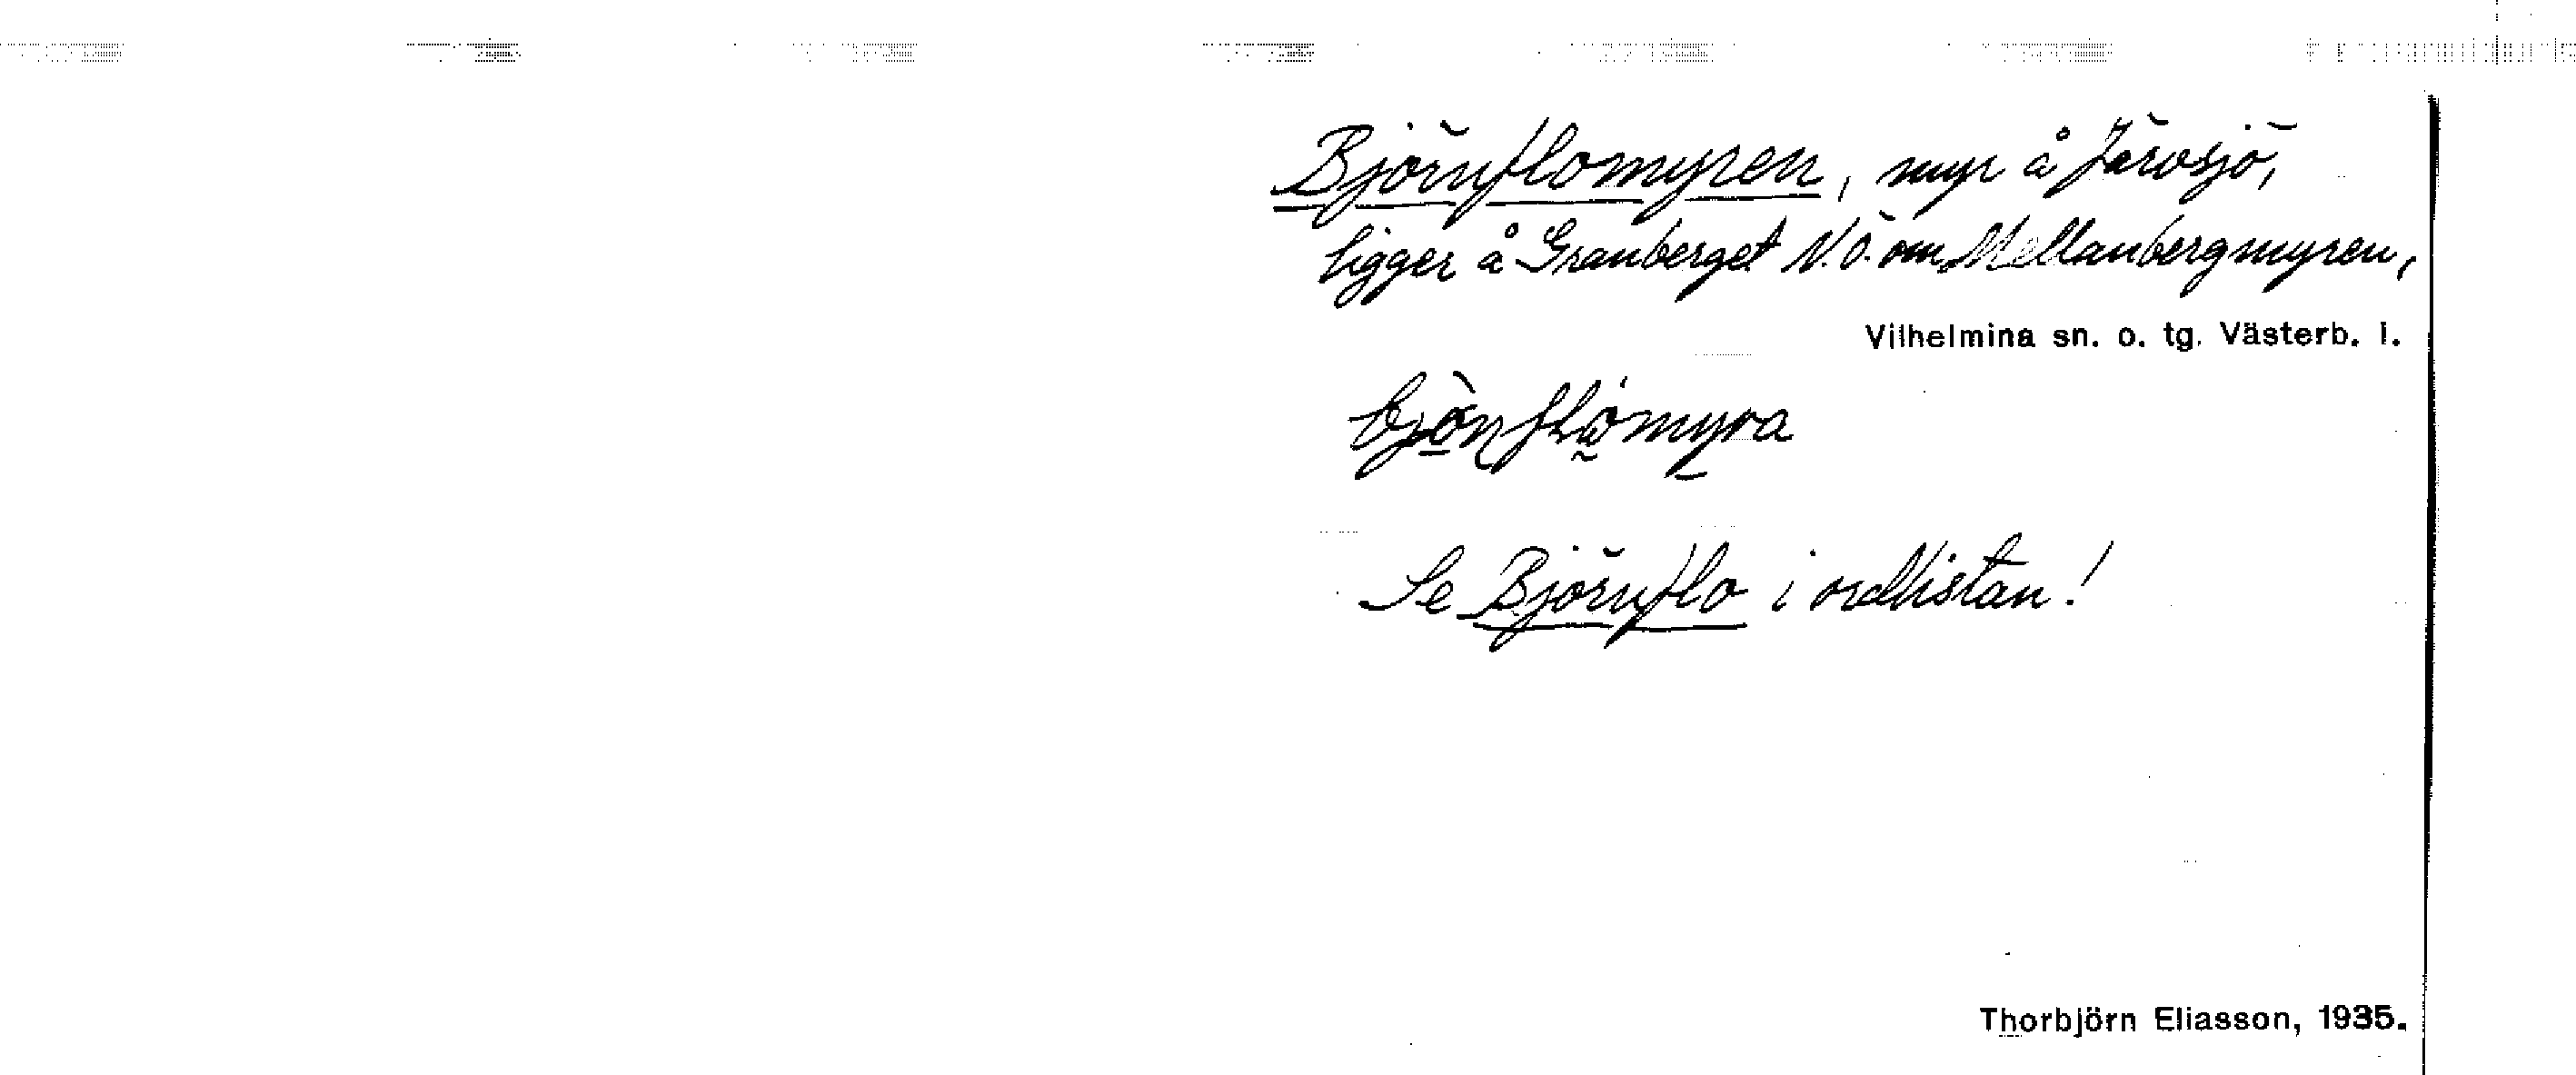 Björnflomyren, myr å Järvsjö,
ligger å Granberget N.Ö. om Mellanbergmyren,
Vilhelmina sn. o. tg. Västerb. l.
Se Björnflo i ordlistan!
Thorbjörn Eliasson, 1935.